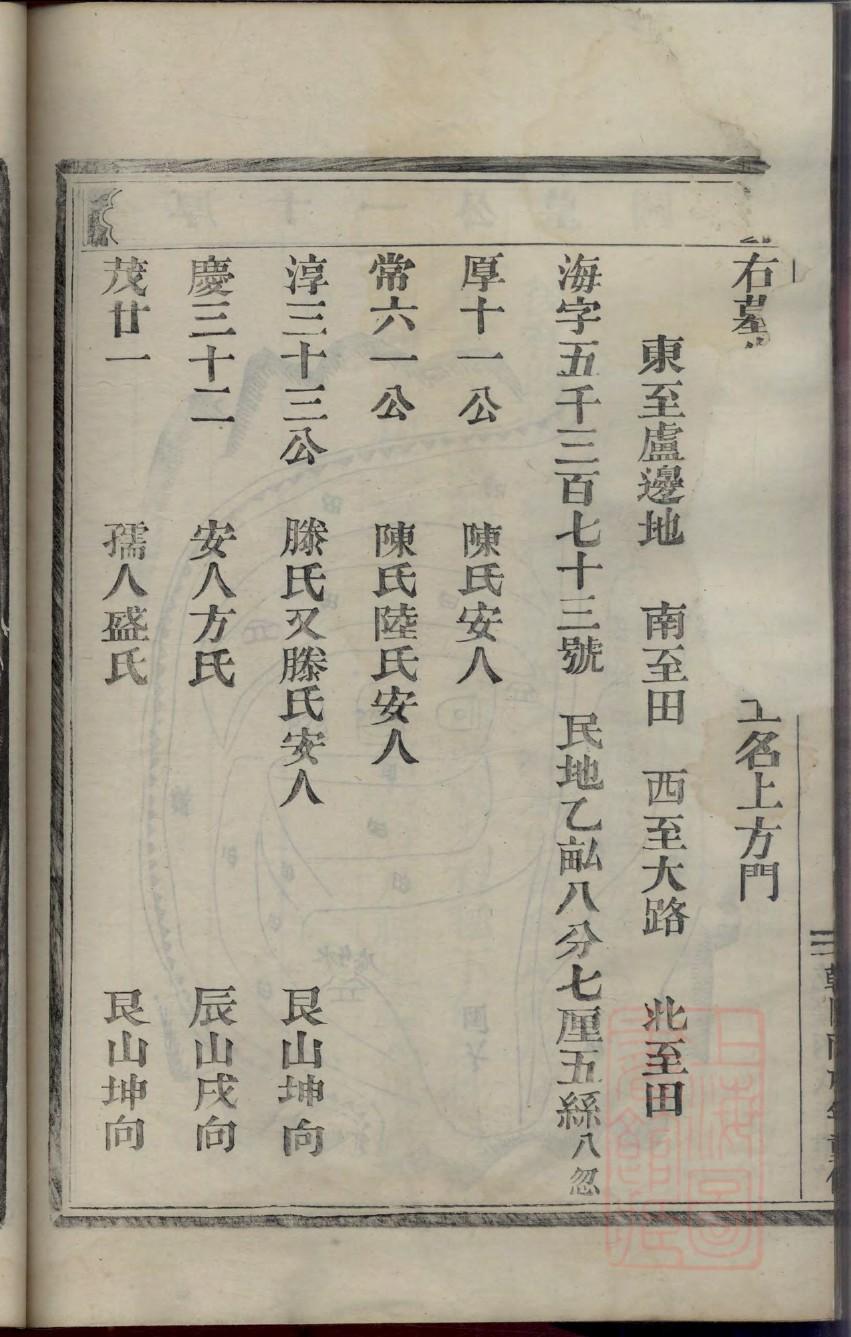 右墓 名上方門
東至盧邊地 南至田 西至大路 北至田
海字五千三百七十三號 民地乙畝八分七厘五絲八忽
厚十一公 陳氏安人
常六一公 陳氏陸氏安人
淳三十三公 滕氏又滕氏安人 艮山坤向
慶三十二 安人方氏 辰山戌向
茂廿一 孺人盛氏 艮山坤向